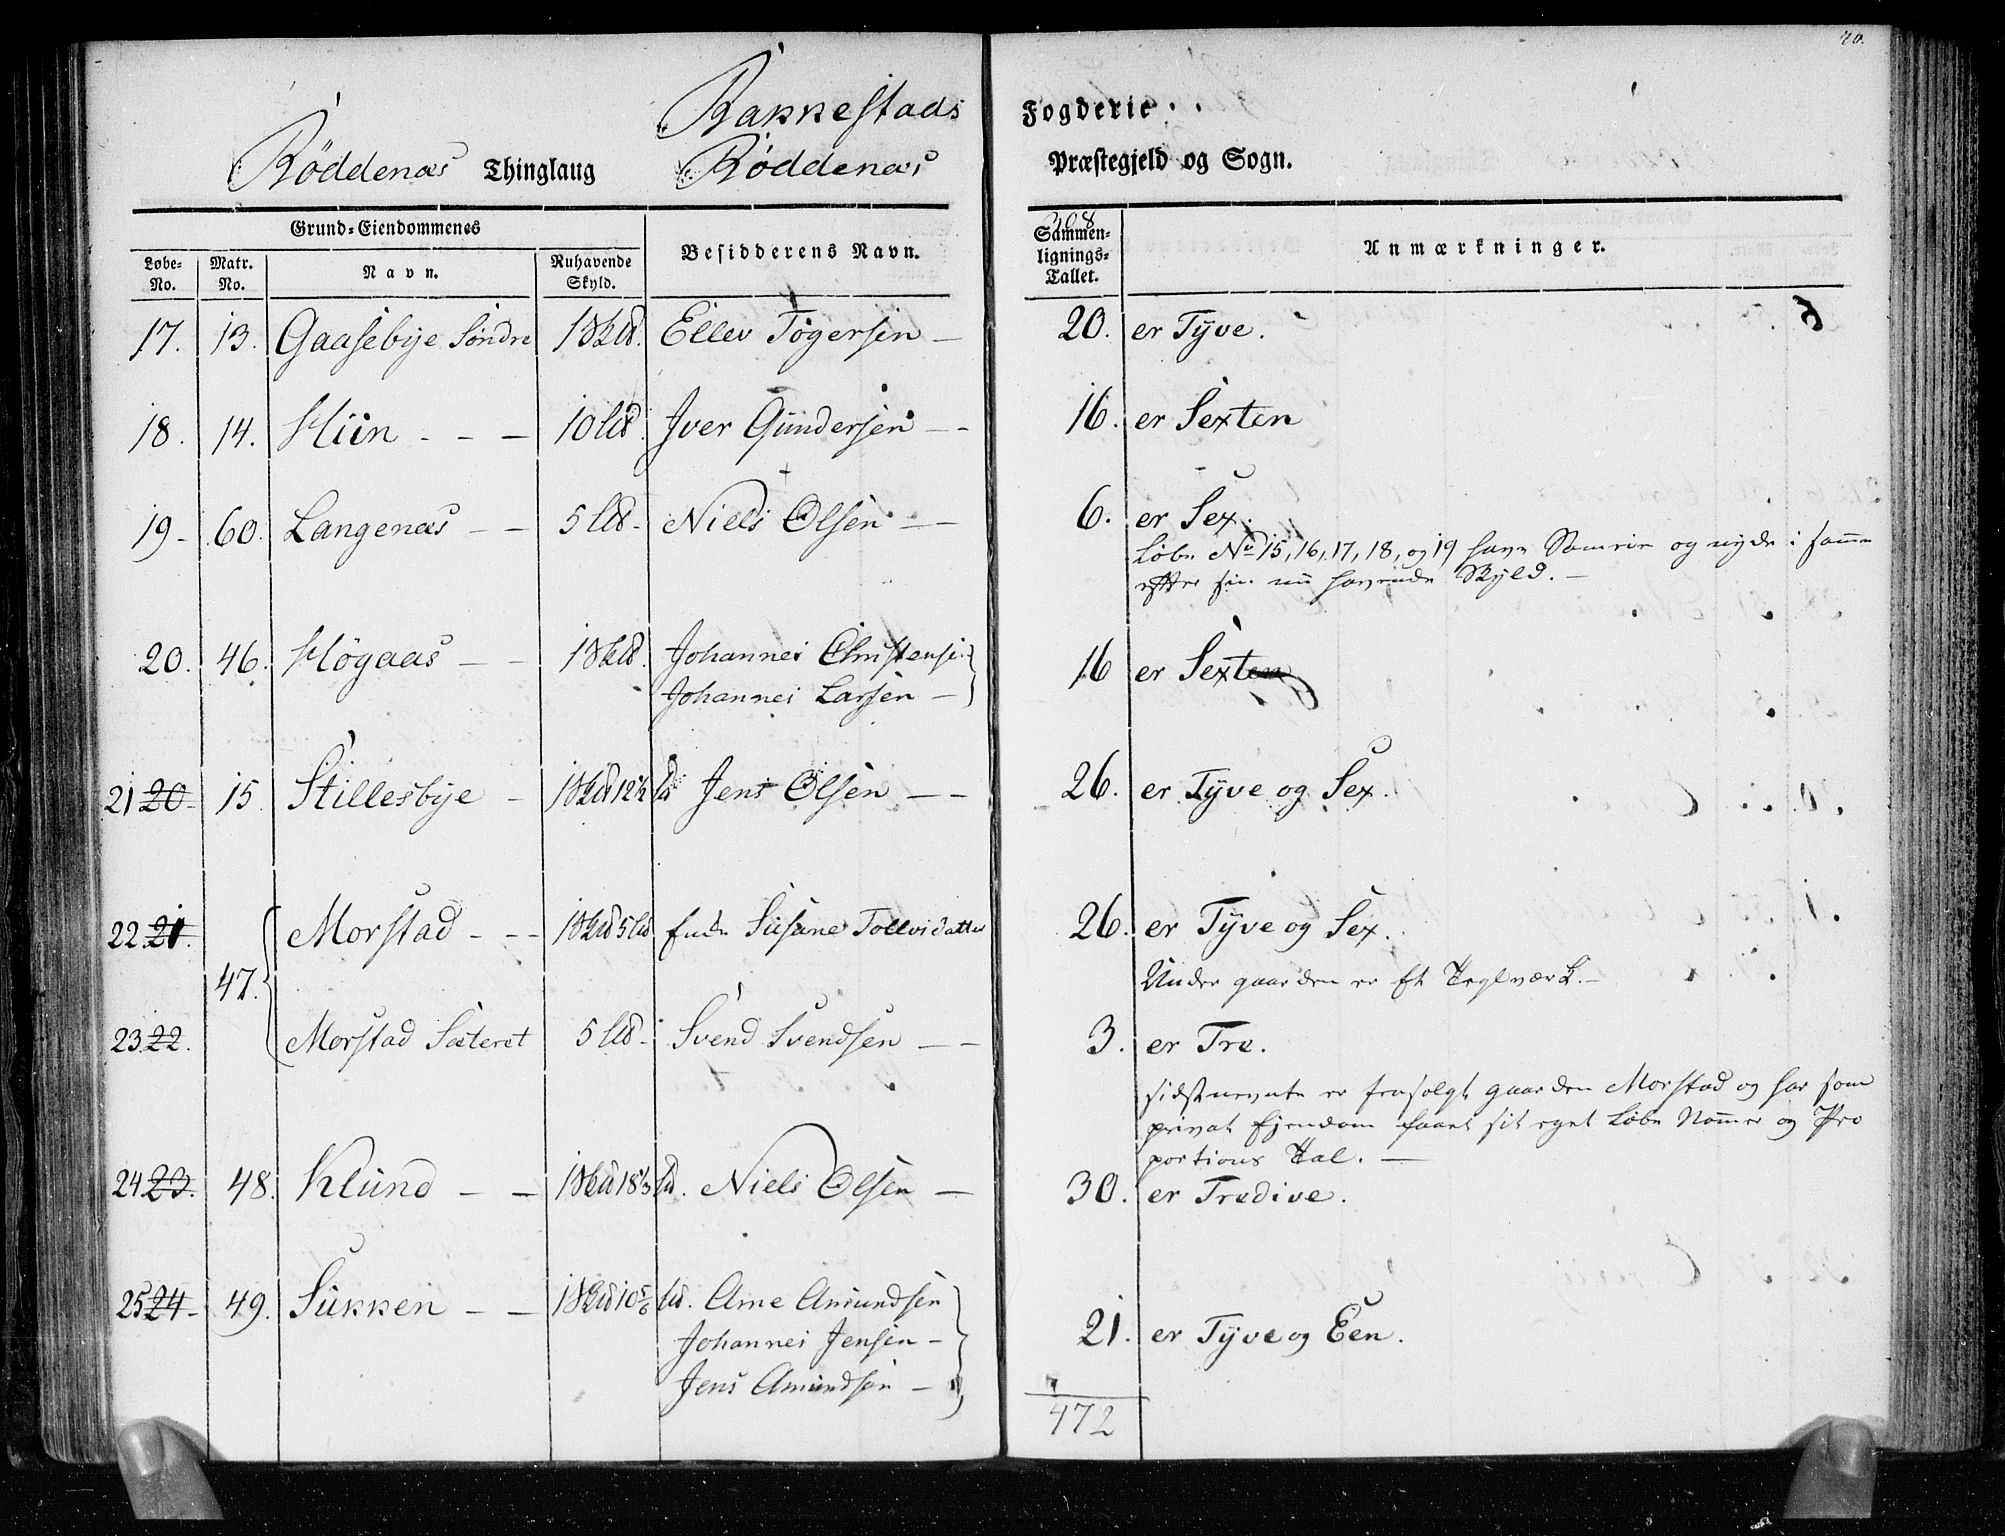 70.
Rakkestads Fogderie
Røddenæs Thinglaug Røddenæs Præstegjeld og Sogn.
Grund-Eiendommenes
Løbe-No. Matr. No. Navn. Nuhavende Skyld. Besidderens Navn. Sammenlignings-Tallet. Anmærkninger.
268
17. 13. Gaasebye Søndre 1 Skd. Ellev Togersen — 20. er Tyve.
18. 14. Hiin - - — 10 Ld. Iver Gundersen — - 16. er Sexten
19 - 60. Langenæs — - 5 Ld - Niels Olsen — — 6. er Sex.
Løbe No 15, 16, 17, 18, og 19 have Sameie og nyde i samme
efter sin nu havende Skyld. —
20. 46. Høgaas — - 1 Skd. Johannes Christensen 16 er Sexten
Johannes Larsen —
21 20 - 15. Stillesbye - 1 Skd 12½ Ld Jens Olsen — — 26. er Tyve og Sex.
22 21. 47. Morstad - - - 1 Skd 5 Ld Enke Susane Tollevsdatter 26. er Tyve og Sex.
Under gaarden er et Teglværk. —
23 22. Morstad Sæteret 5 Ld - Svend Svendsen — — 3. er Tre.
sidstnevnte er frasolgt gaarden Morstad og har som
privat Ejendom faaet sit eget Løbe Nommer og Pro
portions Tal. —
24 23. 48. Klund - — 1 Skd 18⅓ Ld. Niels Olsen — 30. er Tredive.
25 24 - 49. Sukken — — 1 Skd 10⅚ Ld. Arne Amundsen
Johannes Jensen - 21. er Tyve og Een.
Jens Amundsen —
472